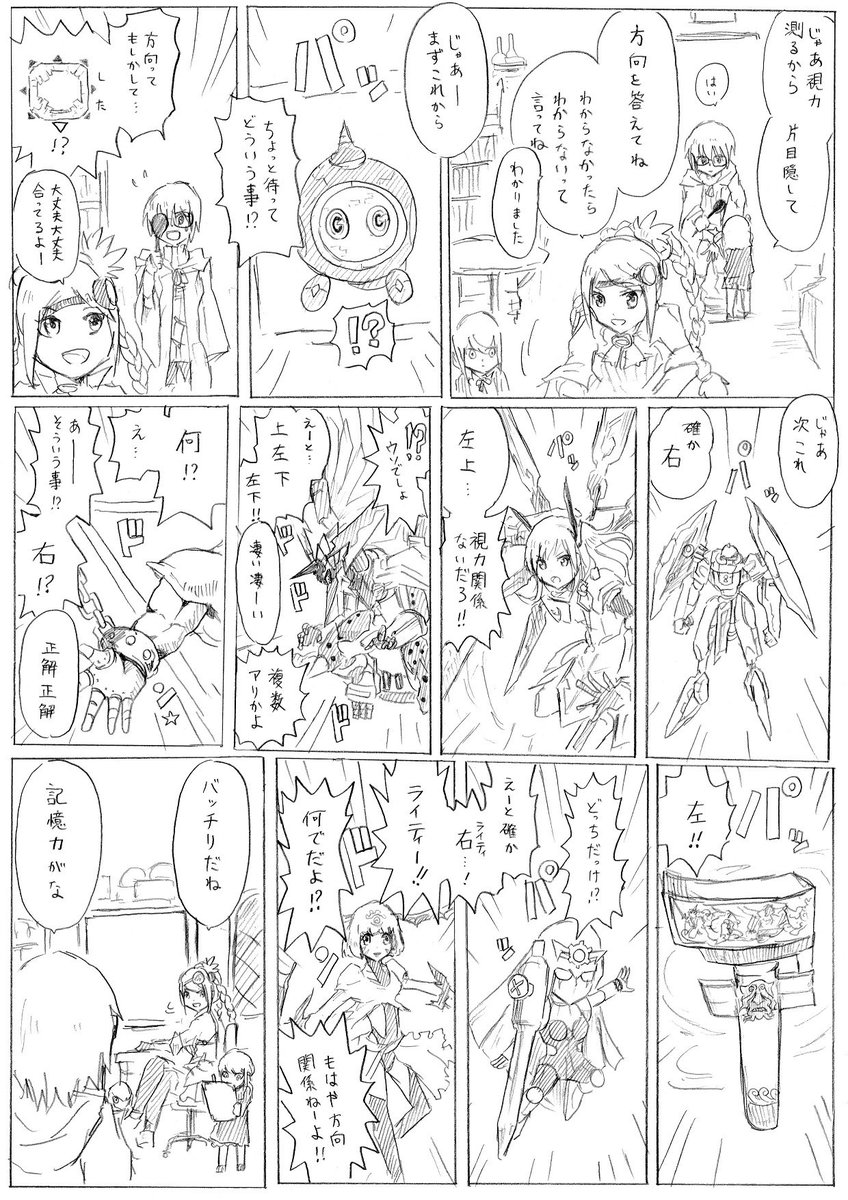 じゃあ視力
測るから
片目隠して
はい
方向を答えてね
わからなかったら
わからないって
言ってね
わかりました
じゃあー
まずこれから
バ
ちょっと待って
どういう事!?
!?
方向って
もしかして…
した
!?
大丈夫大丈夫
合ってるよー
じゃあ
次これ
確か
右
バッ
パッ
左上…
視力関係
ないだろ!!
!?
ウソでしょ
えーと…
上左下
左下!!
凄い凄ーい
複数
アリかよ
ドドド
何!?
え…
あー
そういう事!?
右!?
正解正解
ドド
バ☆
左!!
バ
どっちだっけ!?
えーと確か
右…!
ライティ
ライティー!!
何でだよ!?
もはや方向
関係ねーよ!!
バッチリだね
記憶力がな